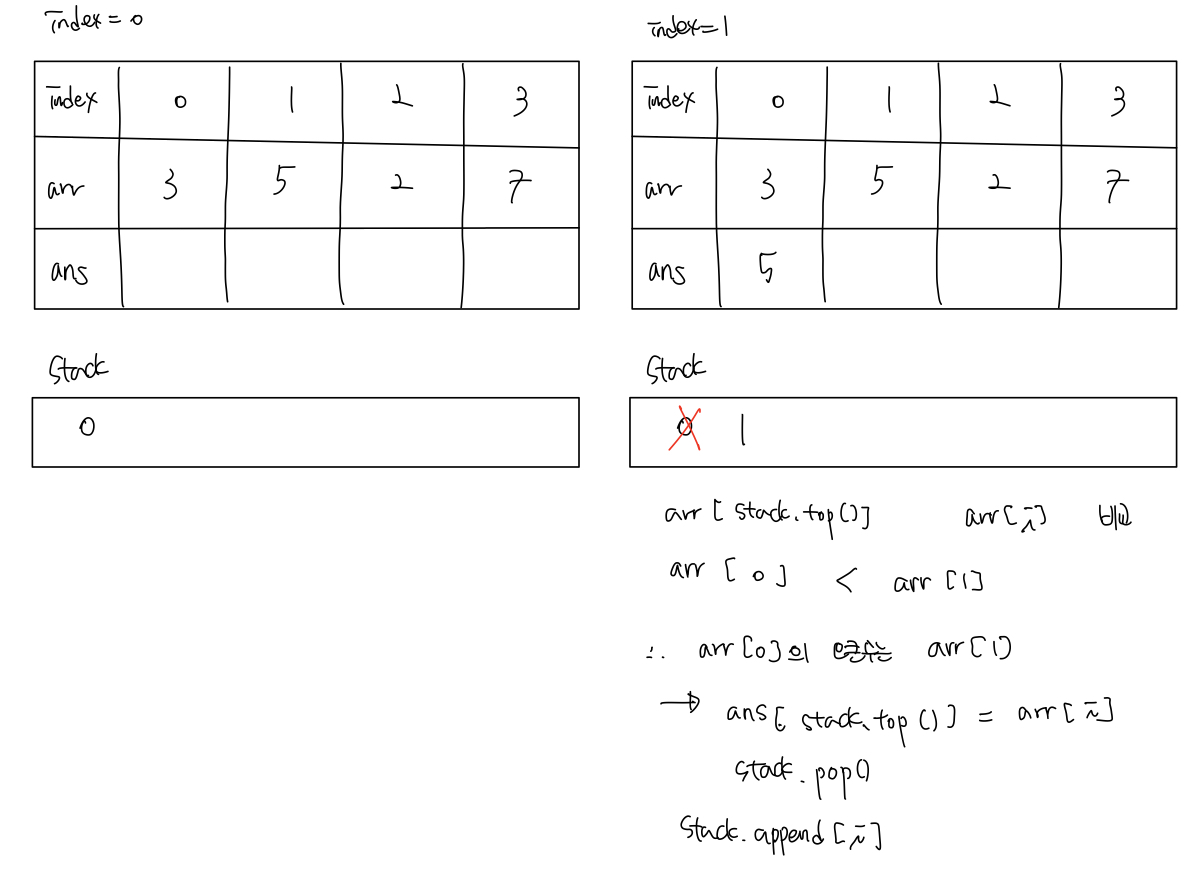 index = 0
index 0 1 2 3
arr 3 5 2 7
ans
Stack
0
index=1
index 0 1 2 3
arr 3 5 2 7
ans 5
Stack
0 1
arr [ stack.top()] arr[i] 비교
arr [ 0 ] < arr [1]
∴ arr [0]의 오큰수는 arr[1]
→ ans[ stack.top () ] = arr [ i ]
stack.pop()
Stack.append[i]